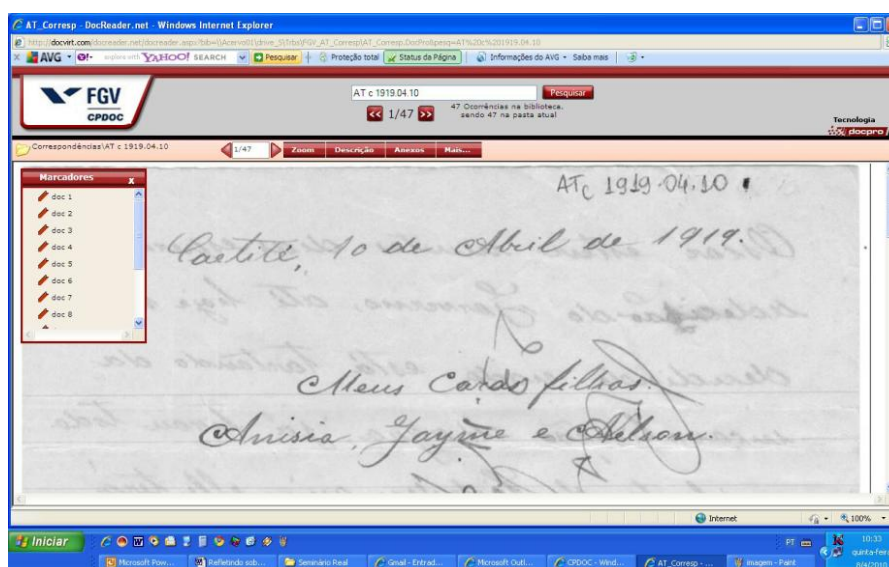 AT_Corresp - DocReader.net - Windows Internet Explorer
AVG
YAHOO! SEARCH
Pesquisar
Proteção total
Status da Página
Informações do AVG
Saiba mais
FGV
CPDOC
AT c 1919.04.10
Pesquisar
1/47
47 Ocorrências na biblioteca.
sendo 47 na pasta atual
Tecnologia
docpro
Correspondências\AT c 1919.04.10
1/47
Zoom
Descrição
Anexos
Mais...
Marcadores x
doc 1
doc 2
doc 3
doc 4
doc 5
doc 6
doc 7
doc 8
ATc 1919.04.10
Caetité, 10 de Abril de 1919.
Meus Caros filhos.
Anisia, Jayme e Nelson.
Internet
100%
Iniciar
Microsoft Pow...
Refletindo sob...
Seminário Real
Gmail - Entrad...
Microsoft Outl...
CPDOC - Wind...
AT_Corresp - ...
imagem - Paint
PT
10:33
quinta-feira
8/4/2010